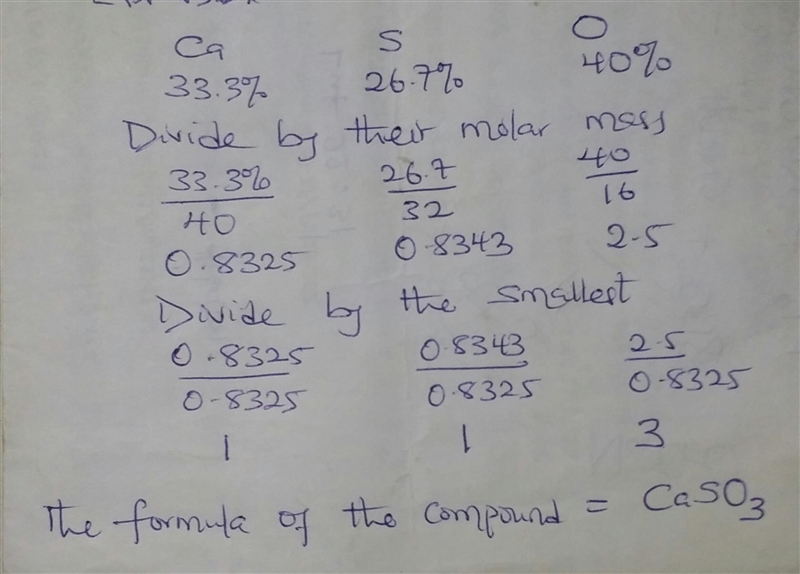 Ca S O
33.3% 26.7% 40%
Divide by their molar mass
33.3% 26.7 40
40 32 16
0.8325 0.8343 2.5
Divide by the smallest
0.8325 0.8343 2.5
0.8325 0.8325 0.8325
1 1 3
The formula of the compound = CaSO3